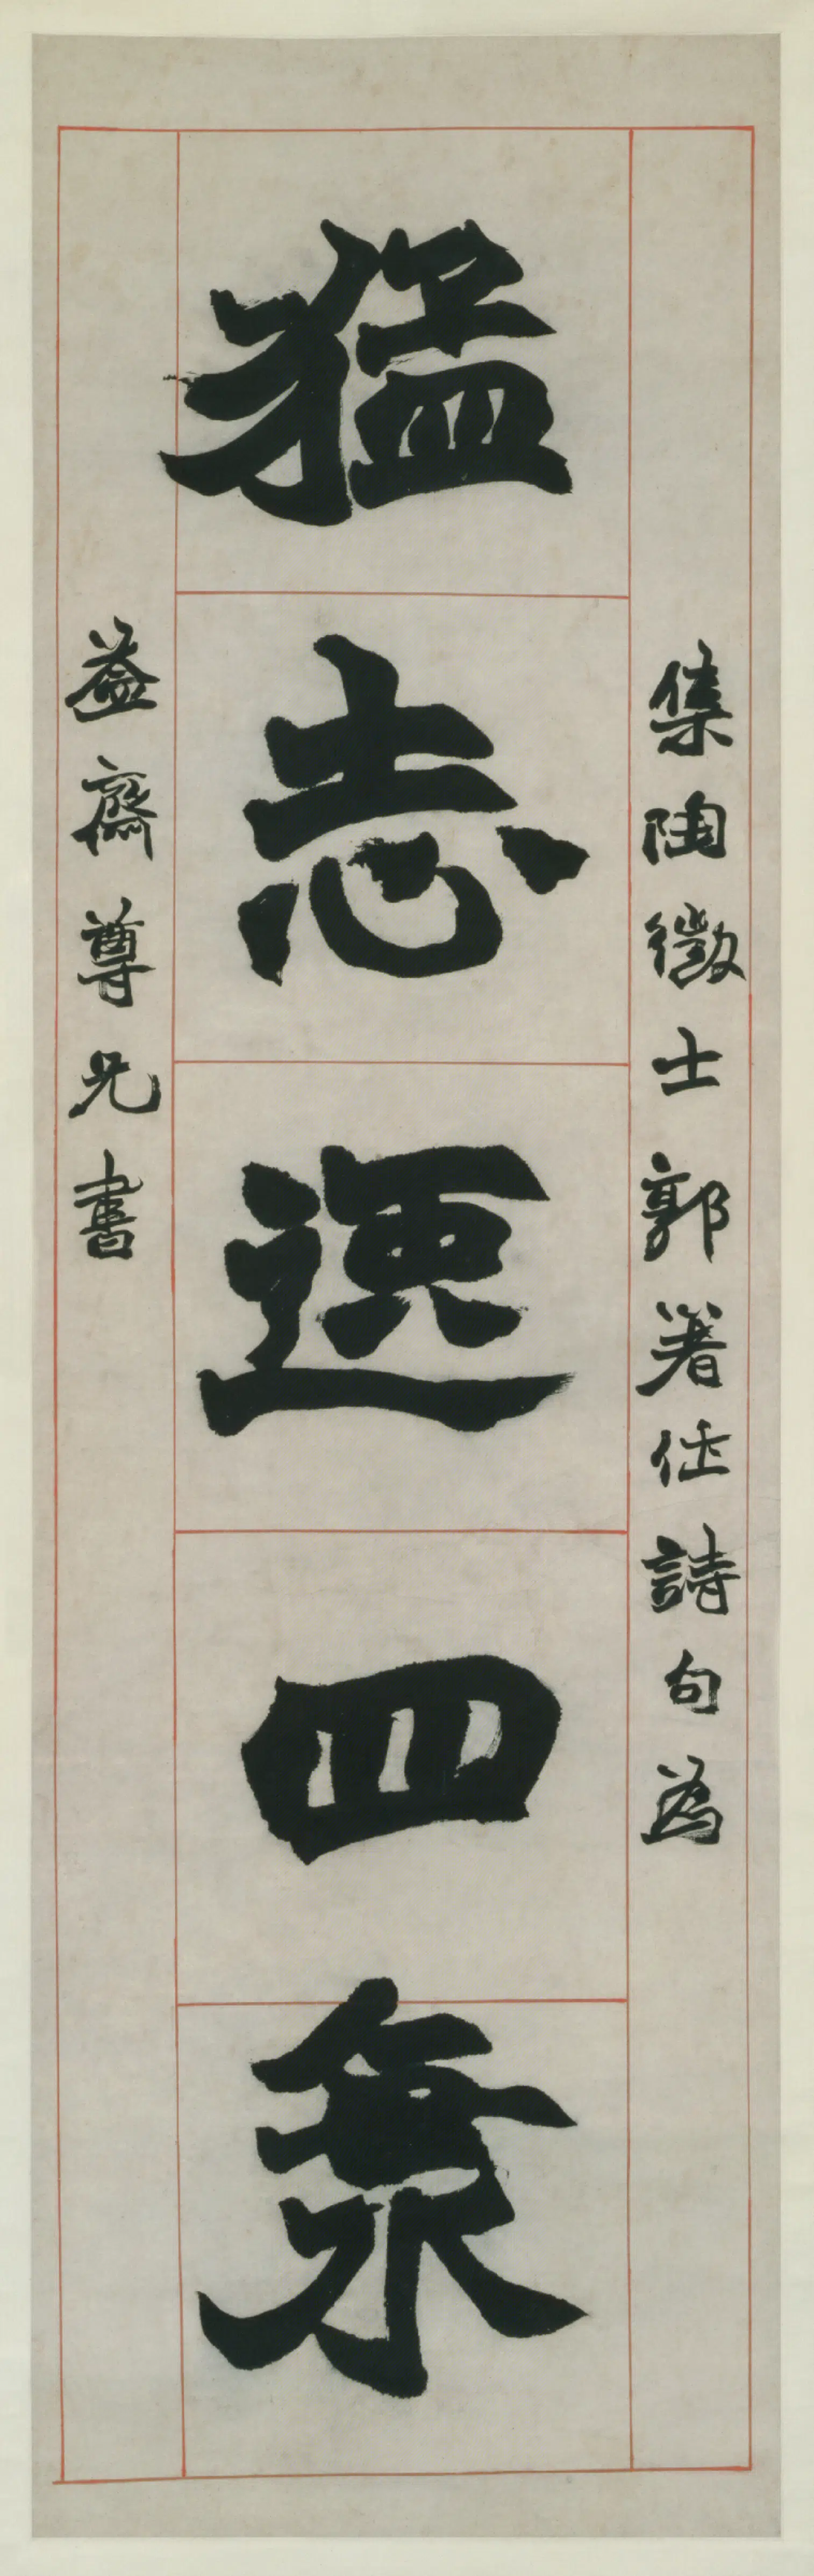 猛志逸四海
集陶徵士郭著作詩句為
益齋尊兄書